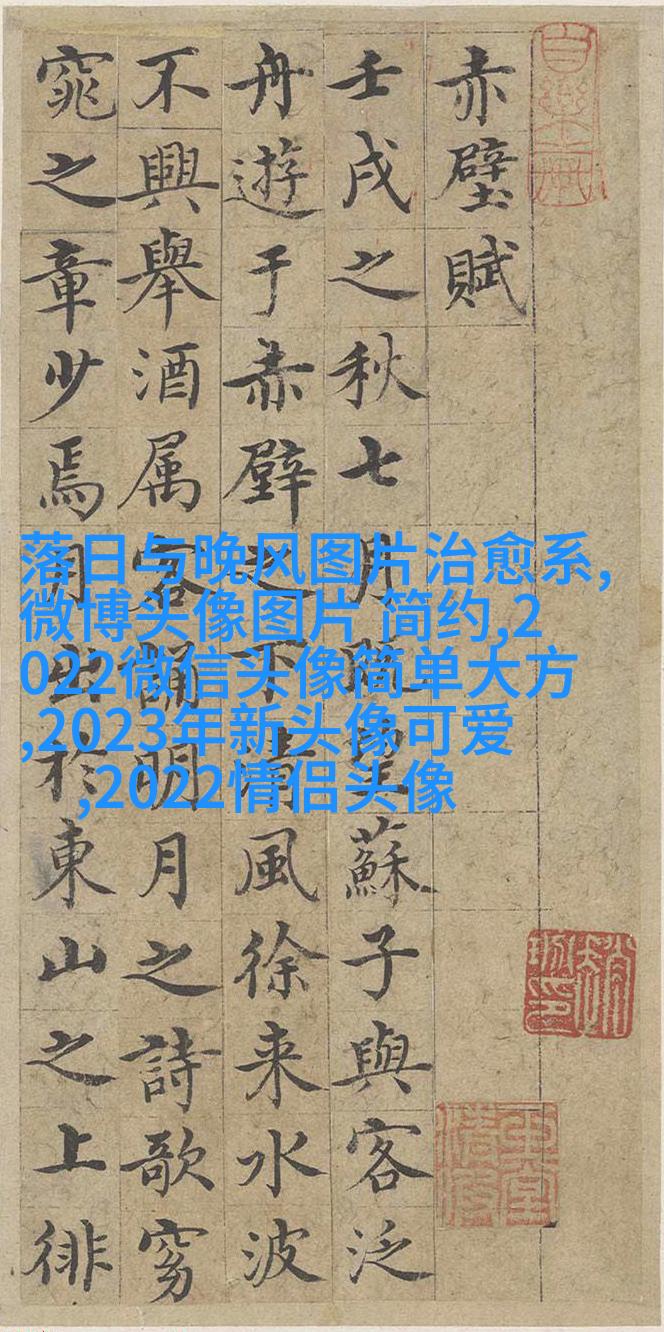 赤壁賦
壬戌之秋七月既望蘇子與客泛
舟遊于赤壁之下清風徐来水波
不興舉酒属客誦明月之詩歌窈
窕之章少焉月出於東山之上徘
落日与晚风图片治愈系,
微博头像图片 简约,2
022微信头像简单大方
,2023年新头像可爱
,2022情侣头像